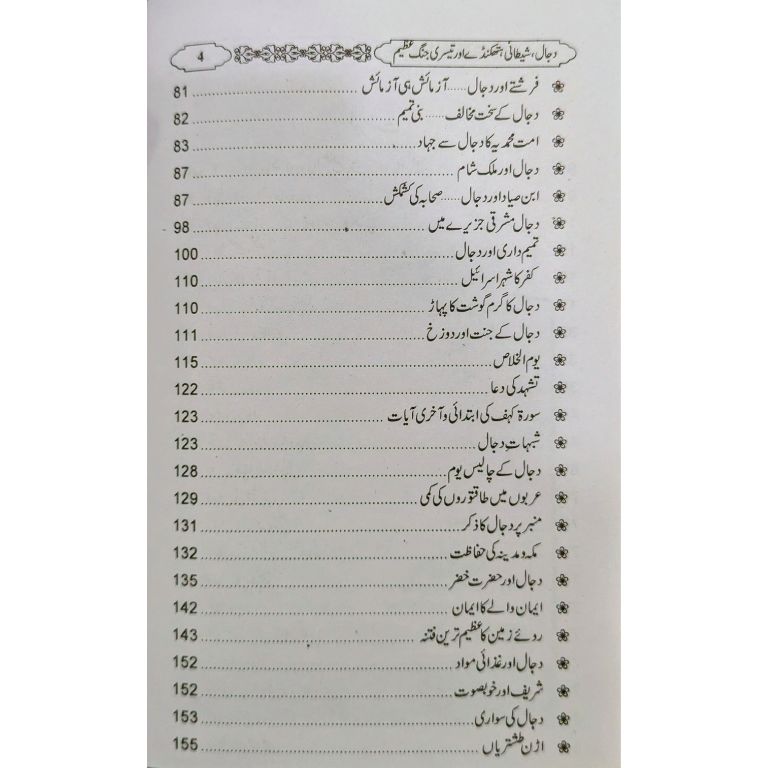 دجال، شیطانی ہتھکنڈے اور تیسری جنگ عظیم 4
فرشتے اور دجال......آزمائش ہی آزمائش 81
دجال کے سخت مخالف......بنی تمیم 82
امت محمدیہ کا دجال سے جہاد 83
دجال اور ملک شام 87
ابن صیاد اور دجال......صحابہ کی کشمکش 87
دجال مشرقی جزیرے میں 98
تمیم داری اور دجال 100
کفر کا شہر اسرائیل 110
دجال کا گرم گوشت کا پہاڑ 110
دجال کے جنت اور دوزخ 111
یوم الخلاص 115
تشہد کی دعا 122
سورۃ کہف کی ابتدائی و آخری آیات 123
شبہاتِ دجال 123
دجال کے چالیس یوم 128
عربوں میں طاقتوروں کی کمی 129
منبر پر دجال کا ذکر 131
مکہ و مدینہ کی حفاظت 132
دجال اور حضرت خضر 135
ایمان والے کا ایمان 142
روئے زمین کا عظیم ترین فتنہ 143
دجال اور غذائی مواد 152
شریف اور خوبصوت 152
دجال کی سواری 153
اڑن طشتریاں 155